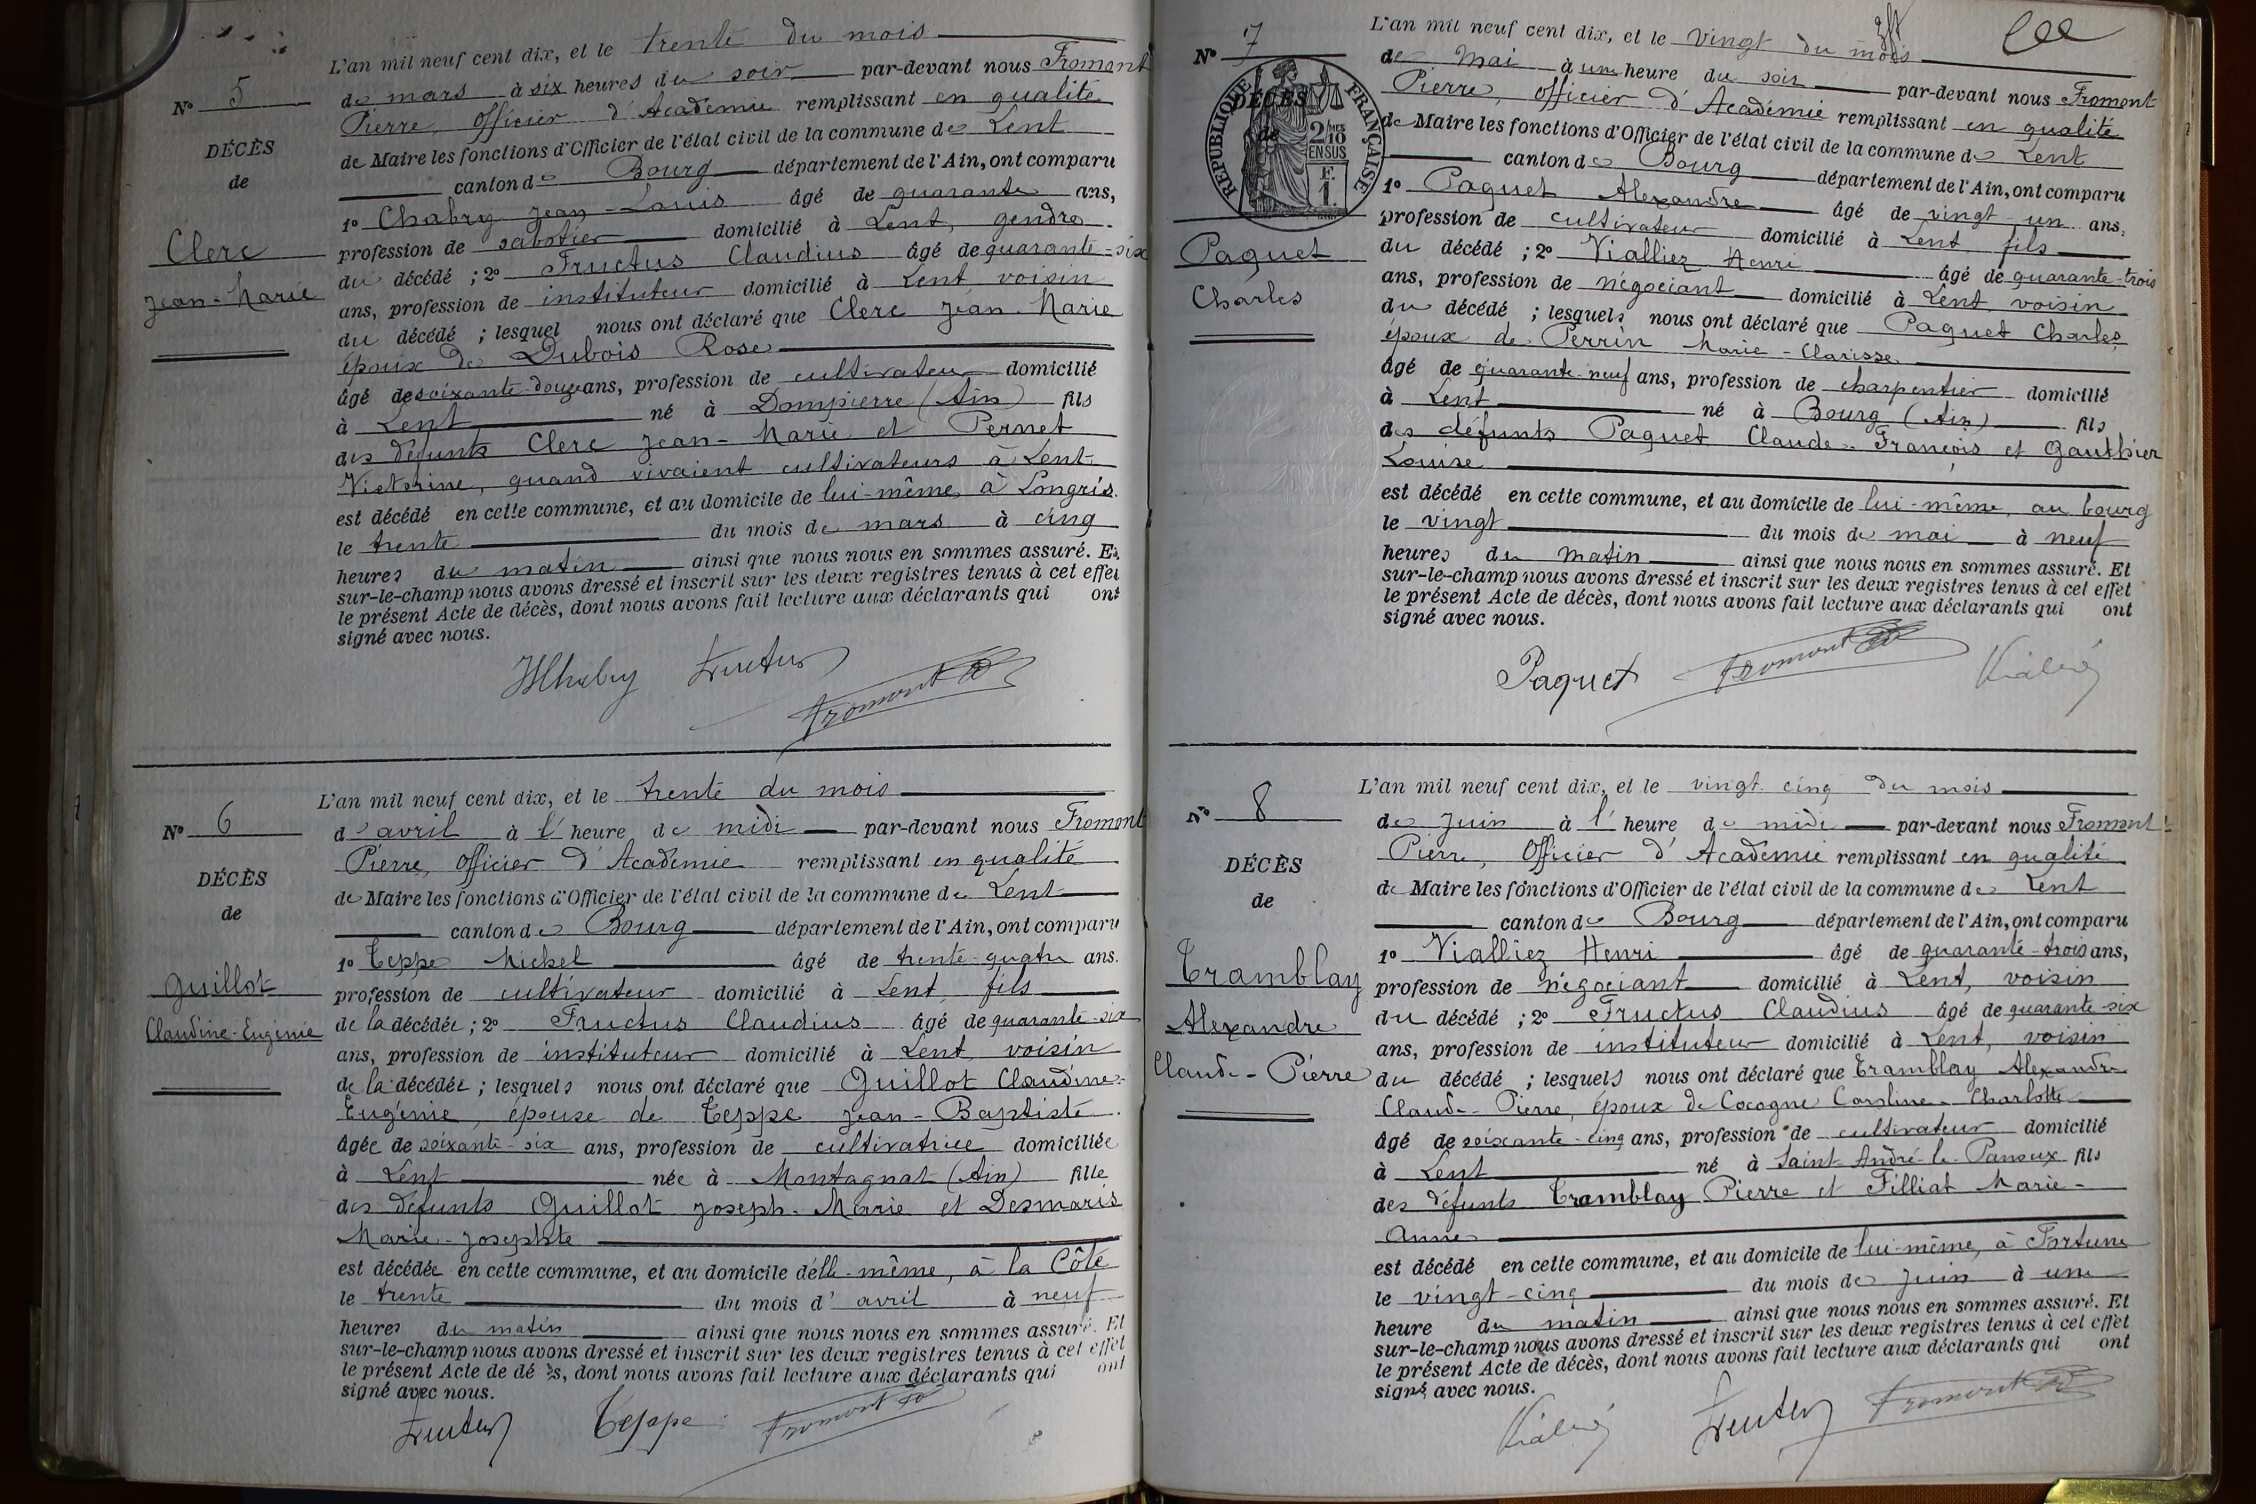 N° 5
DÉCÈS
de
Clerc
Jean-Marie
L'an mil neuf cent dix, et le trente du mois
de mars à six heures du soir par-devant nous Fromont
Pierre, Officier d'Académie remplissant en qualité
de Maire les fonctions d'Officier de l'état civil de la commune de Lent
canton de Bourg département de l'Ain, ont comparu
1° Chabry Jean-Louis âgé de quarante ans,
profession de sabotier domicilié à Lent, gendre
du décédé ; 2° Fructus Claudius âgé de quarante-six
ans, profession de instituteur domicilié à Lent, voisin
du décédé ; lesquel nous ont déclaré que Clerc Jean-Marie
époux de Dubois Rose
âgé de soixante-douze ans, profession de cultivateur domicilié
à Lent né à Dompierre (Ain) fils
des défunts Clerc Jean-Marie et Pernet
Victorine, quand vivaient cultivateurs à Lent
est décédé en cette commune, et au domicile de lui-même, à Longris.
le trente du mois de mars à cinq
heures du matin ainsi que nous nous en sommes assuré. Et
sur-le-champ nous avons dressé et inscrit sur les deux registres tenus à cet effet
le présent Acte de décès, dont nous avons fait lecture aux déclarants qui ont
signé avec nous.
JLChabry Fructus
Fromont
N° 6
DÉCÈS
de
Guillot
Claudine-Eugénie
L'an mil neuf cent dix, et le trente du mois
d'avril à l'heure de midi par-devant nous Fromont
Pierre, Officier d'Académie remplissant en qualité
de Maire les fonctions d'Officier de l'état civil de la commune de Lent
canton de Bourg département de l'Ain, ont comparu
1° Teppe Michel âgé de trente-quatre ans.
profession de cultivateur domicilié à Lent, fils
de la décédée ; 2° Fructus Claudius âgé de quarante-six
ans, profession de instituteur domicilié à Lent, voisin
de la décédée ; lesquels nous ont déclaré que Guillot Claudine-
Eugénie, épouse de Teppe Jean-Baptiste
âgée de soixante-six ans, profession de cultivatrice domiciliée
à Lent née à Montagnat (Ain) fille
des défunts Guillot Joseph-Marie et Desmaris
Marie-Josephte
est décédée en cette commune, et au domicile d'elle-même, à la Côte
le trente du mois d'avril à neuf
heures du matin ainsi que nous nous en sommes assuré. Et
sur-le-champ nous avons dressé et inscrit sur les deux registres tenus à cet effet
le présent Acte de décès, dont nous avons fait lecture aux déclarants qui ont
signé avec nous.
Fructus Teppe Fromont
N° 7
DÉCÈS
de
RÉPUBLIQUE FRANÇAISE
2/10
EN SUS
F.
1.
Paquet
Charles
L'an mil neuf cent dix, et le vingt du mois
de mai à une heure du soir par-devant nous Fromont
Pierre, Officier d'Académie remplissant en qualité
de Maire les fonctions d'Officier de l'état civil de la commune de Lent
canton de Bourg département de l'Ain, ont comparu
1° Paquet Alexandre âgé de vingt-un ans,
profession de cultivateur domicilié à Lent fils
du décédé ; 2° Vialliez Henri âgé de quarante-trois
ans, profession de négociant domicilié à Lent, voisin
du décédé ; lesquels nous ont déclaré que Paquet Charles
époux de Perrin Marie-Clarisse
âgé de quarante-neuf ans, profession de charpentier domicilié
à Lent né à Bourg (Ain) fils
des défunts Paquet Claude-François et Gauthier
Louise
est décédé en cette commune, et au domicile de lui-même, au bourg
le vingt du mois de mai à neuf
heures du matin ainsi que nous nous en sommes assuré. Et
sur-le-champ nous avons dressé et inscrit sur les deux registres tenus à cet effet
le présent Acte de décès, dont nous avons fait lecture aux déclarants qui ont
signé avec nous.
Paquet Fromont
N° 8
DÉCÈS
de
Tramblay
Alexandre
Claude-Pierre
L'an mil neuf cent dix, et le vingt-cinq du mois
de Juin à l'heure de midi par-devant nous Fromont
Pierre, Officier d'Académie remplissant en qualité
de Maire les fonctions d'Officier de l'état civil de la commune de Lent
canton de Bourg département de l'Ain, ont comparu
1° Vialliez Henri âgé de quarante-trois ans,
profession de négociant domicilié à Lent, voisin
du décédé ; 2° Fructus Claudius âgé de quarante-six
ans, profession de instituteur domicilié à Lent, voisin
du décédé ; lesquels nous ont déclaré que Tramblay Alexandre
Claude-Pierre, époux de Cocogne Caroline-Charlotte
âgé de soixante-cinq ans, profession de cultivateur domicilié
à Lent né à Saint-André-le-Panoux fils
des défunts Tramblay Pierre et Filliat Marie-
Anne
est décédé en cette commune, et au domicile de lui-même, à Fortune
le vingt-cinq du mois de Juin à une
heure du matin ainsi que nous nous en sommes assuré. Et
sur-le-champ nous avons dressé et inscrit sur les deux registres tenus à cet effet
le présent Acte de décès, dont nous avons fait lecture aux déclarants qui ont
signé avec nous.
Fructus Fromont